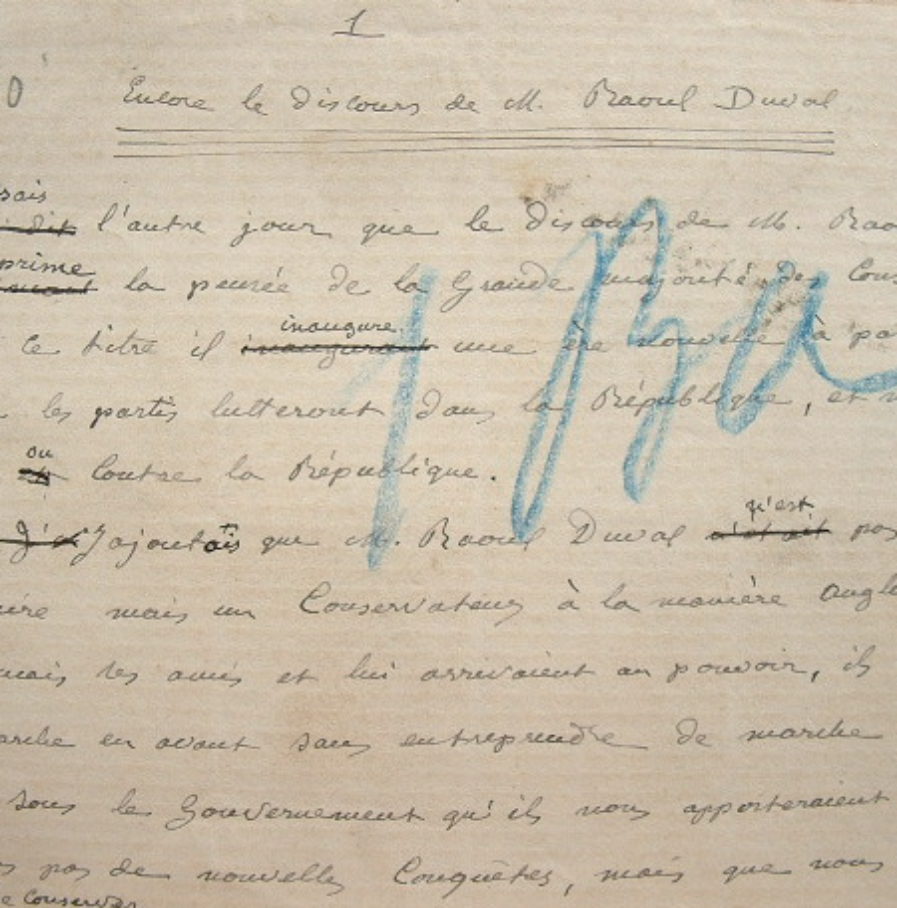 1
Encore le discours de M. Raoul Duval
sais
dit l'autre jour que le discours de M. Rao
prime
la pensée de la Grande majorité des Cons
ce titre il inaugurant une ère nouvelle à pa
inaugure
les partis lutteront dans la République, et n
ou
et contre la République.
J'ajoutais que M. Raoul Duval n'était pas
qu'est
ière mais un Conservateur à la manière Angl
mais ses amis et lui arrivaient au pouvoir, ils
arche en avant sans entreprendre de marche
sous le Gouvernement qu'ils nous apporteraient
s pas de nouvelles Conquêtes, mais que nous
e Conserver